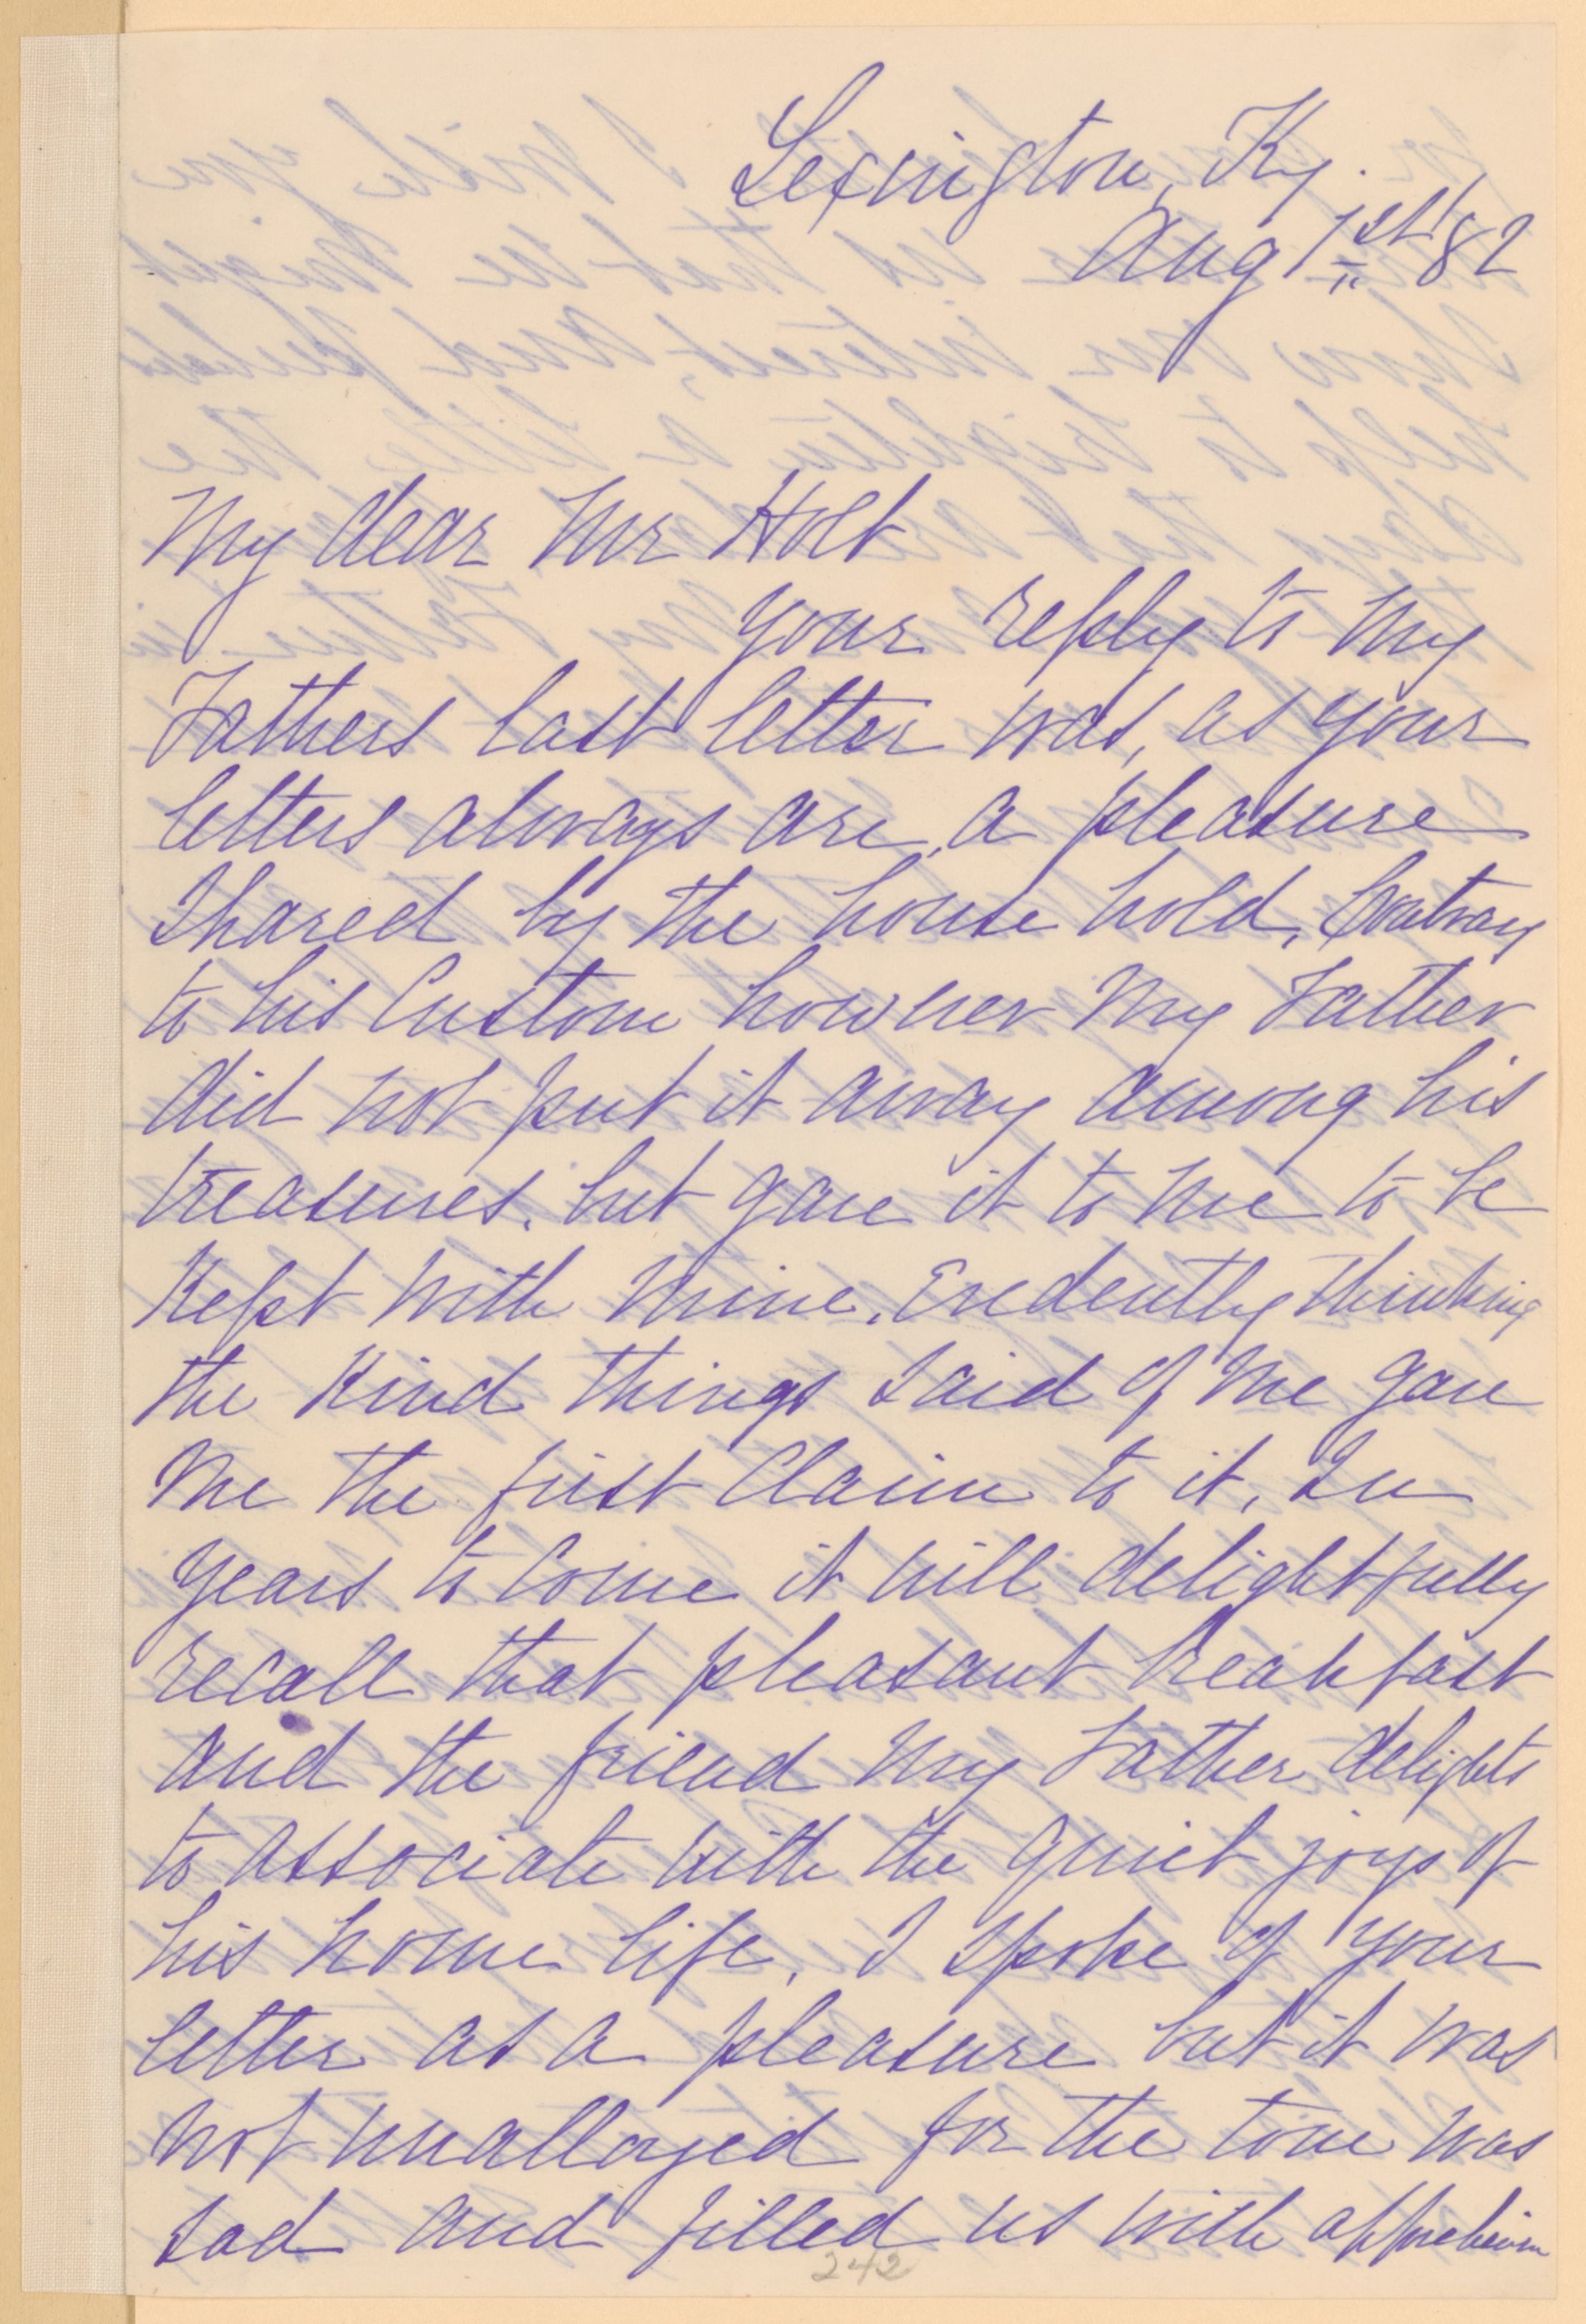 Lexington, Ky.
Aug 1st 82
My dear Mr Holt
Your reply to my
Fathers last letter was, as your
letters always are, a pleasure
shared by the house hold, Contrary
to his custom however my Father
did not put it away among his
treasures, but gave it to me to be
kept with mine, Evedently thinking
the kind things said of me gave
me the first claim to it, In
years to come it will delightfully
recall that pleasant breakfast
and the friend my Father delights
to associate with the quiet joys of
his home life. I spoke of your
letter as a pleasure but it was
not unalloyed for the tone was
sad and filled us with
242